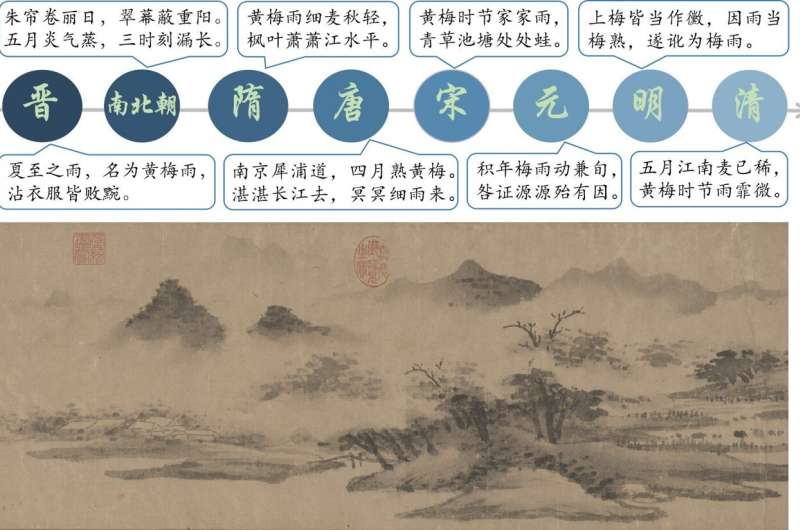 朱帘卷丽日，翠幕蔽重阳。
五月炎气蒸，三时刻漏长。
黄梅雨细麦秋轻，
枫叶萧萧江水平。
黄梅时节家家雨，
青草池塘处处蛙。
上梅皆当作黴，因雨当
梅熟，遂讹为梅雨。
晋
南北朝
隋
唐
宋
元
明
清
夏至之雨，名为黄梅雨，
沾衣服皆败黦。
南京犀浦道，四月熟黄梅。
湛湛长江去，冥冥细雨来。
积年梅雨动兼旬，
咎证源源殆有因。
五月江南麦已稀，
黄梅时节雨霏微。